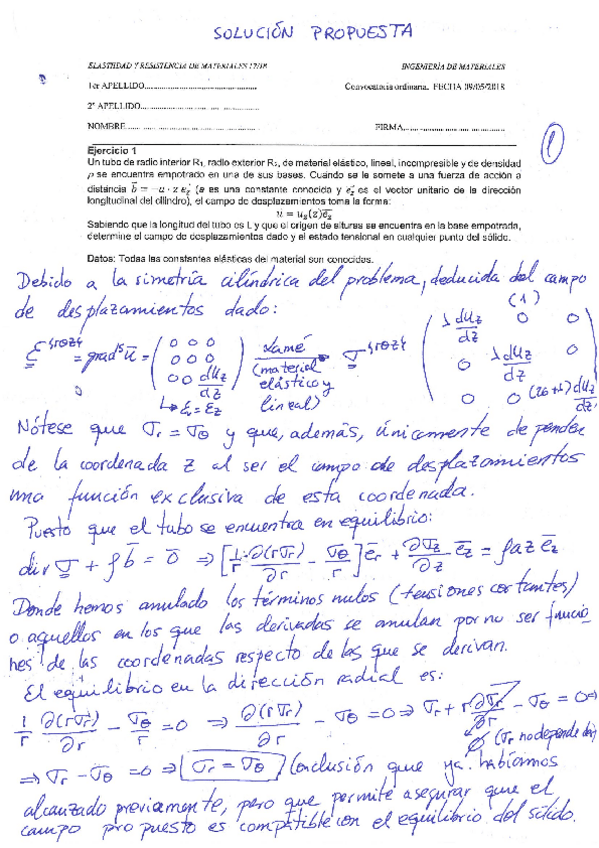 SOLUCIÓN PROPUESTA
ELASTICIDAD Y RESISTENCIA DE MATERIALES 17/18 INGENIERÍA DE MATERIALES
1er APELLIDO........ Convocatoria ordinaria. FECHA 09/05/2018
2º APELLIDO........
NOMBRE........ FIRMA........
1
Ejercicio 1
Un tubo de radio interior R₁, radio exterior R₂, de material elástico, lineal, incompresible y de densidad
ρ se encuentra empotrado en una de sus bases. Cuando se le somete a una fuerza de acción a
distancia b̄ = -a · z e_z (a es una constante conocida y e_z es el vector unitario de la dirección
longitudinal del cilindro), el campo de desplazamientos toma la forma:
ū = u_z(z)e_z
Sabiendo que la longitud del tubo es L y que el origen de alturas se encuentra en la base empotrada,
determine el campo de desplazamientos dado y el estado tensional en cualquier punto del sólido.
Datos: Todas las constantes elásticas del material son conocidas.
Debido a la simetría cilíndrica del problema, deducida del campo
de desplazamientos dado: (1)
ε {rθz} = grad^s ū = (0 0 0; 0 0 0; 0 0 du_z/dz) Lamé (material elástico y lineal) σ {rθz} (λ du_z/dz 0 0; 0 λ du_z/dz 0; 0 0 (2G+λ) du_z/dz)
Nótese que σr = σθ y que, además, únicamente dependen
de la coordenada z al ser el campo de desplazamientos
una función exclusiva de esta coordenada.
Puesto que el tubo se encuentra en equilibrio:
div σ + ρb̄ = 0̄ ⇒ [1/r · ∂(rσr)/∂r - σθ/r] ēr + ∂σz/∂z ēz = ρaz ēz
Donde hemos anulado los términos nulos (tensiones cortantes)
o aquellos en los que las derivadas se anulan por no ser funcio-
nes de las coordenadas respecto de las que se derivan.
El equilibrio en la dirección radial es:
1/r ∂(rσr)/∂r - σθ/r = 0 ⇒ ∂(rσr)/∂r - σθ = 0 ⇒ σr + r ∂σr/∂r - σθ = 0 ⇒
0 (σr no depende de r)
⇒ σr - σθ = 0 ⇒ σr = σθ (conclusión que ya habíamos
alcanzado previamente, pero que permite asegurar que el
campo propuesto es compatible con el equilibrio del sólido.